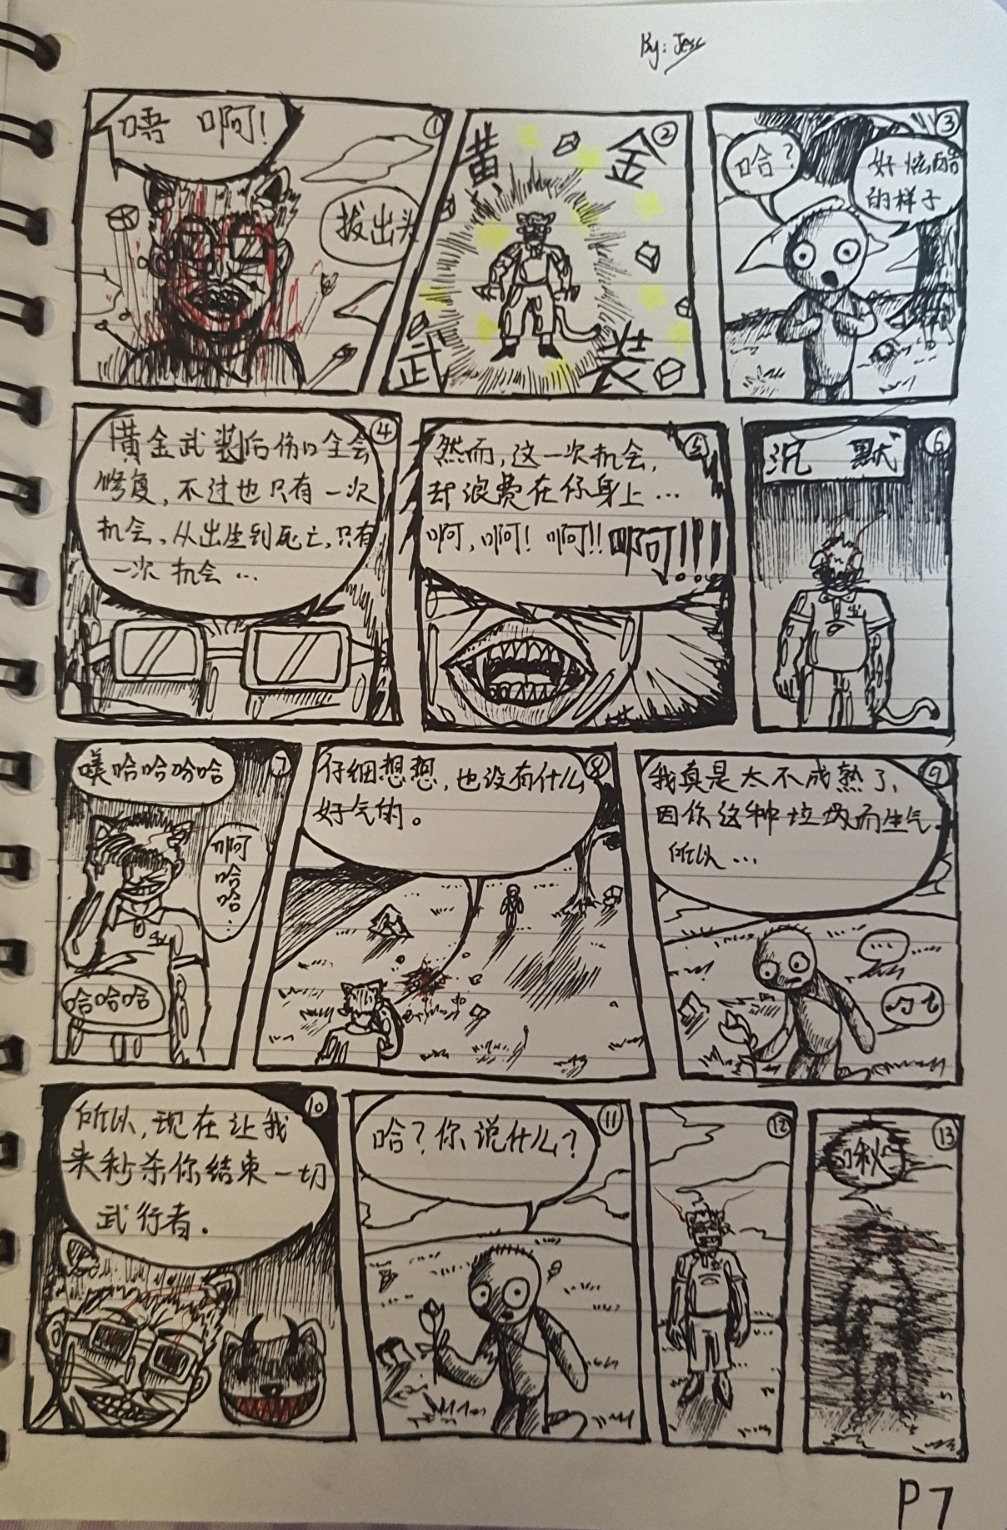 By: Jess
①
唔 啊!
拔出头
②
黄 金
武 装
③
哈?
好炫酷
的样子
④
黄金武装后伤口全会
修复，不过也只有一次
机会、从出生到死亡，只有
一次 机会 ...
⑤
然而，这一次机会，
却浪费在你身上 ...
啊，啊! 啊!! 啊!!!
⑥
沉 默
⑦
噗哈哈哈哈
啊
哈
哈
哈哈哈
⑧
仔细想想，也没有什么
好气的。
⑨
我真是太不成熟了，
因你这种垃圾而生气
所以 ...
...
⑩
所以，现在让我
来秒杀你结束一切
武行者.
⑪
哈? 你说什么?
⑫
⑬
P7